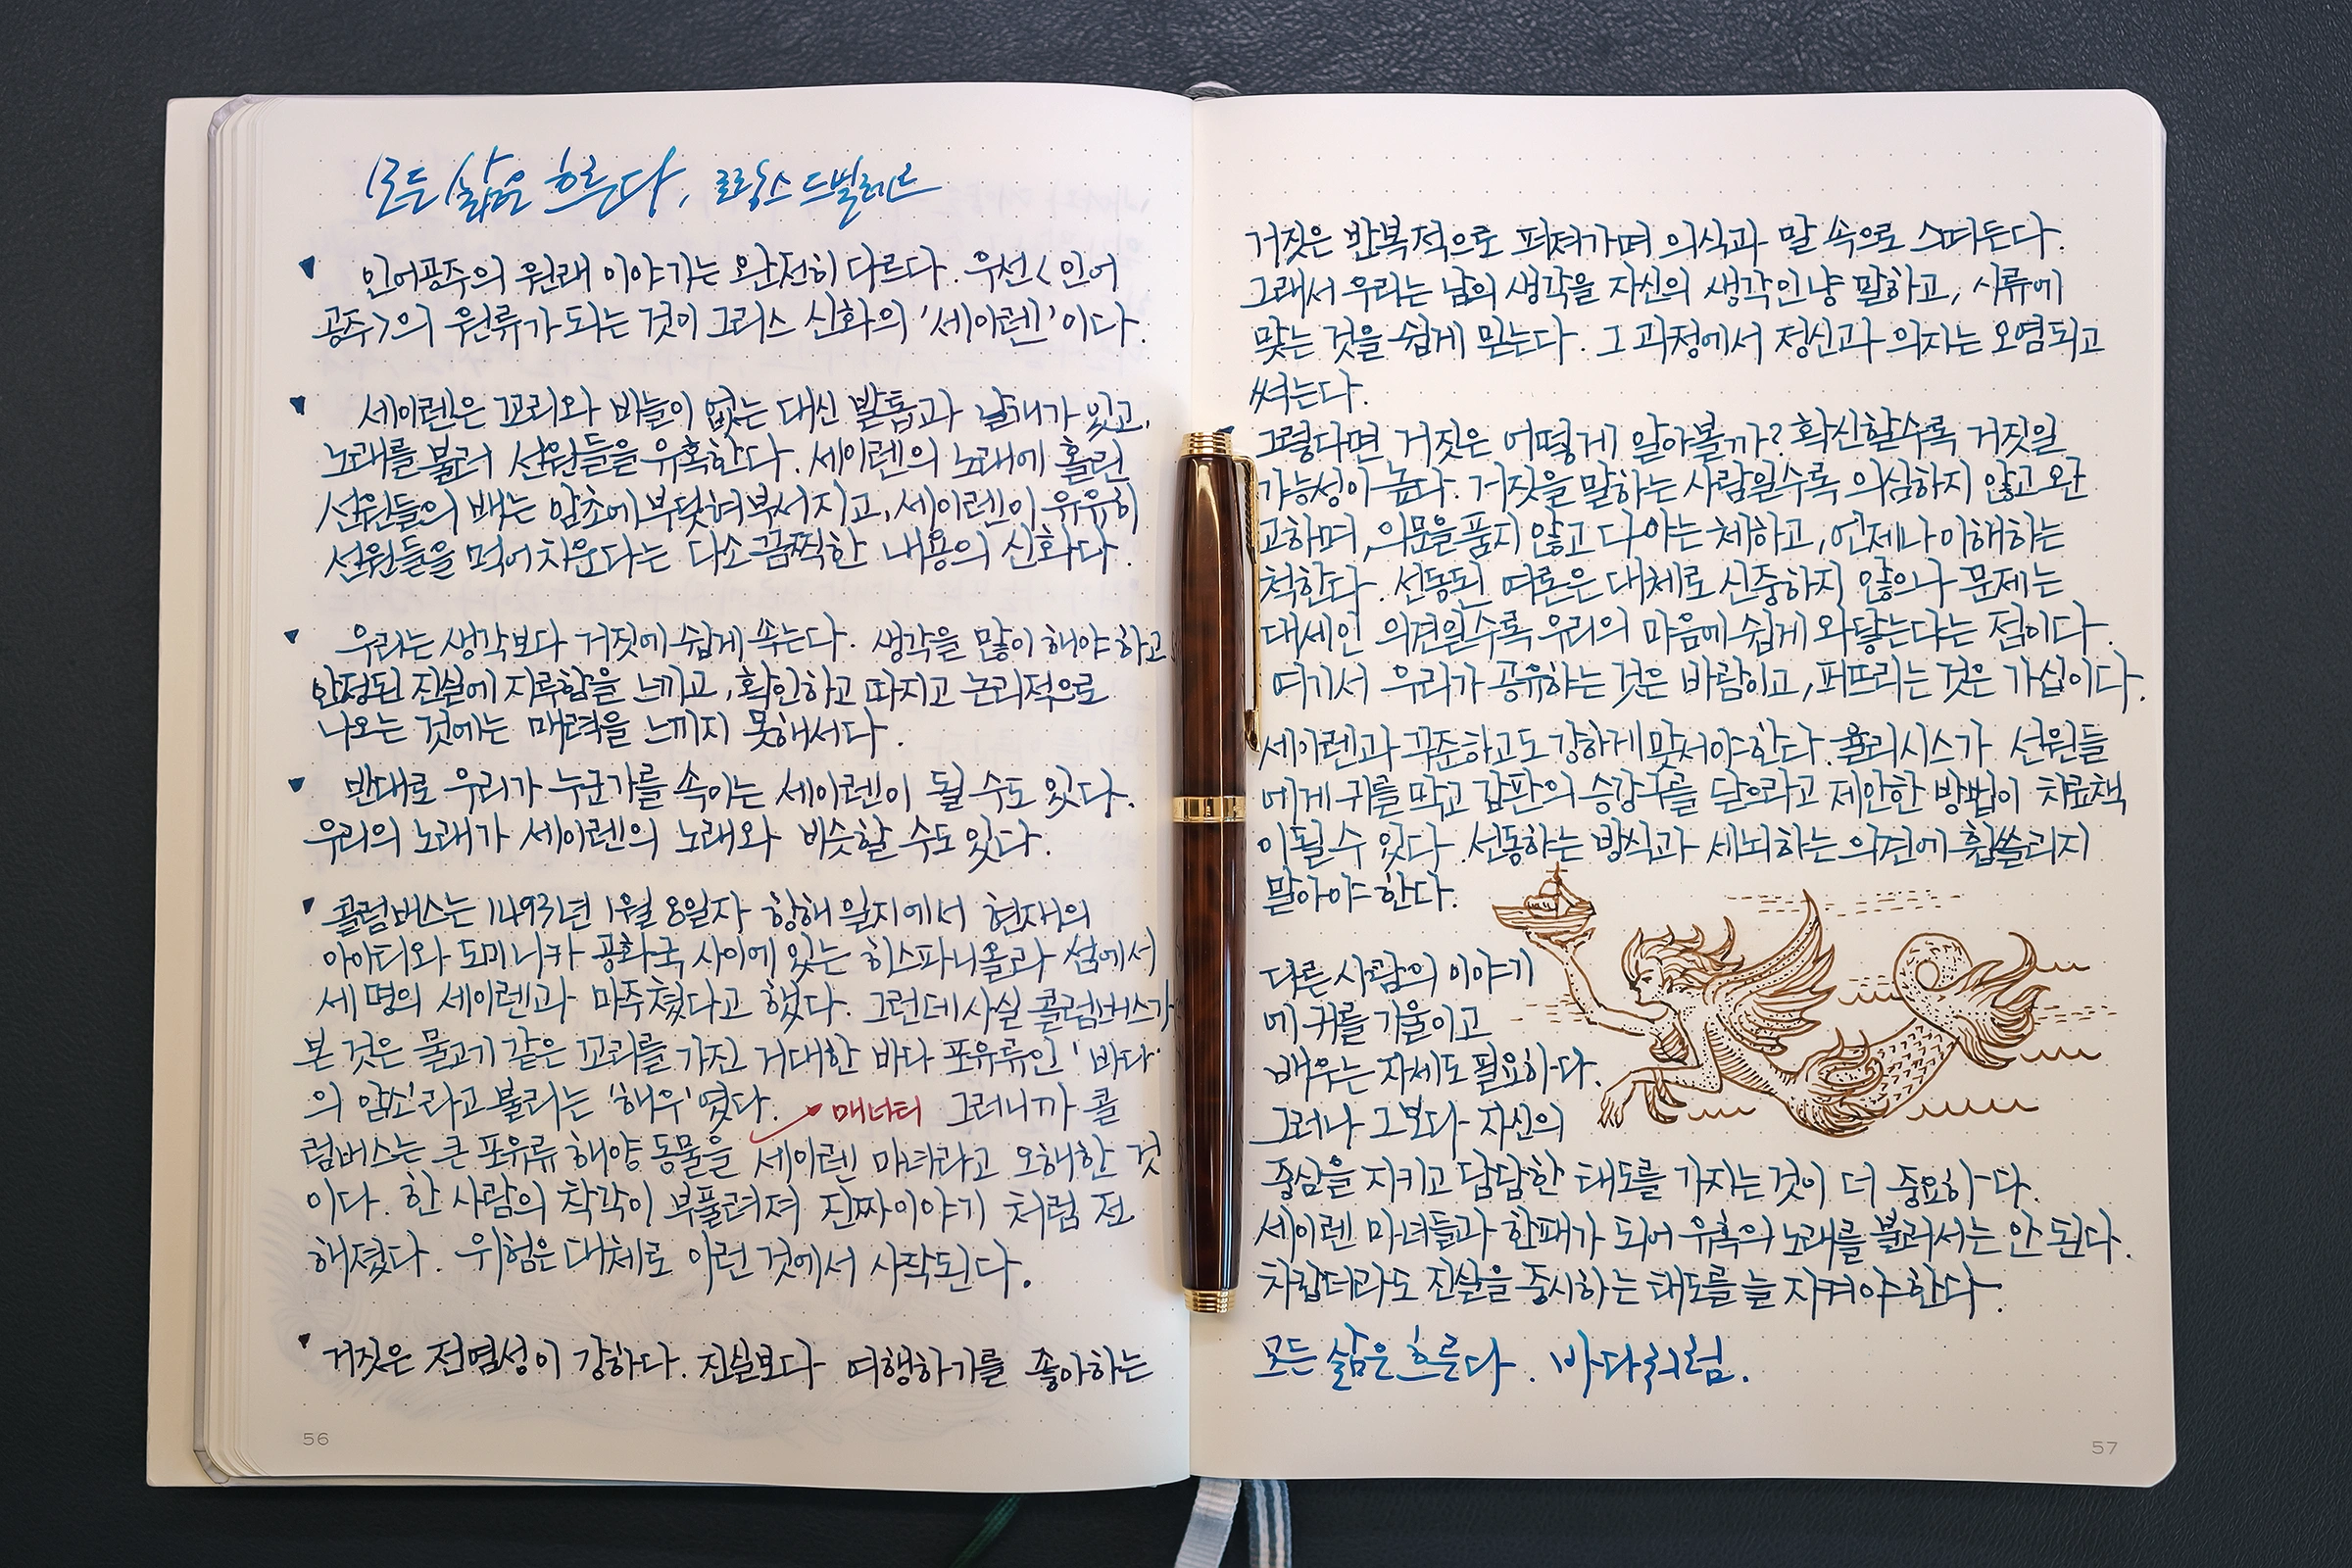 모든 삶은 흐른다, 로랑스 드빌레르
인어공주의 원래 이야기는 완전히 다르다. 우선 <인어
공주>의 원류가 되는 것이 그리스 신화의 '세이렌'이다.
세이렌은 꼬리와 비늘이 없는 대신 발톱과 날개가 있고,
노래를 불러 선원들을 유혹한다. 세이렌의 노래에 홀린
선원들의 배는 암초에 부딪혀 부서지고, 세이렌이 유유히
선원들을 먹어치운다는 다소 끔찍한 내용의 신화다.
우리는 생각보다 거짓에 쉽게 속는다. 생각을 많이 해야 하고
안정된 진실에 지루함을 느끼고, 확인하고 따지고 논리적으로
나오는 것에는 매력을 느끼지 못해서다.
반대로 우리가 누군가를 속이는 세이렌이 될 수도 있다.
우리의 노래가 세이렌의 노래와 비슷할 수도 있다.
콜럼버스는 1493년 1월 8일자 항해 일지에서 현재의
아이티와 도미니카 공화국 사이에 있는 히스파니올라 섬에서
세 명의 세이렌과 마주쳤다고 했다. 그런데 사실 콜럼버스가
본 것은 물고기 같은 꼬리를 가진 거대한 바다 포유류인 '바다
의 암소'라고 불리는 '해우'였다. 매너티 그러니까 콜
럼버스는 큰 포유류 해양 동물을 세이렌 마녀라고 오해한 것
이다. 한 사람의 착각이 부풀려져 진짜 이야기 처럼 전
해졌다. 위험은 대체로 이런 것에서 시작된다.
거짓은 전염성이 강하다. 진실보다 여행하기를 좋아하는
56
거짓은 반복적으로 퍼져가며 의식과 말 속으로 스며든다.
그래서 우리는 남의 생각을 자신의 생각인냥 말하고, 시류에
맞는 것을 쉽게 믿는다. 그 과정에서 정신과 의지는 오염되고
썩는다.
그렇다면 거짓은 어떻게 알아볼까? 확신할수록 거짓일
가능성이 높다. 거짓을 말하는 사람일수록 의심하지 않고 완
고하며, 의문을 품지 않고 다 아는 체하고, 언제나 이해하는
척한다. 선동된 여론은 대체로 신중하지 않으나 문제는
대세인 의견일수록 우리의 마음에 쉽게 와닿는다는 점이다.
여기서 우리가 공유하는 것은 바람이고, 퍼뜨리는 것은 가십이다.
세이렌과 꾸준하고도 강하게 맞서야 한다. 율리시스가 선원들
에게 귀를 막고 갑판의 승강구를 닫으라고 제안한 방법이 치료책
이 될 수 있다. 선동하는 방식과 세뇌하는 의견에 휩쓸리지
말아야 한다.
다른 사람의 이야기
에 귀를 기울이고
배우는 자세도 필요하다.
그러나 그보다 자신의
중심을 지키고 담담한 태도를 가지는 것이 더 중요하다.
세이렌 마녀들과 한패가 되어 유혹의 노래를 불러서는 안 된다.
차갑더라도 진실을 중시하는 태도를 늘 지켜야 한다.
모든 삶은 흐른다. 바다처럼.
57